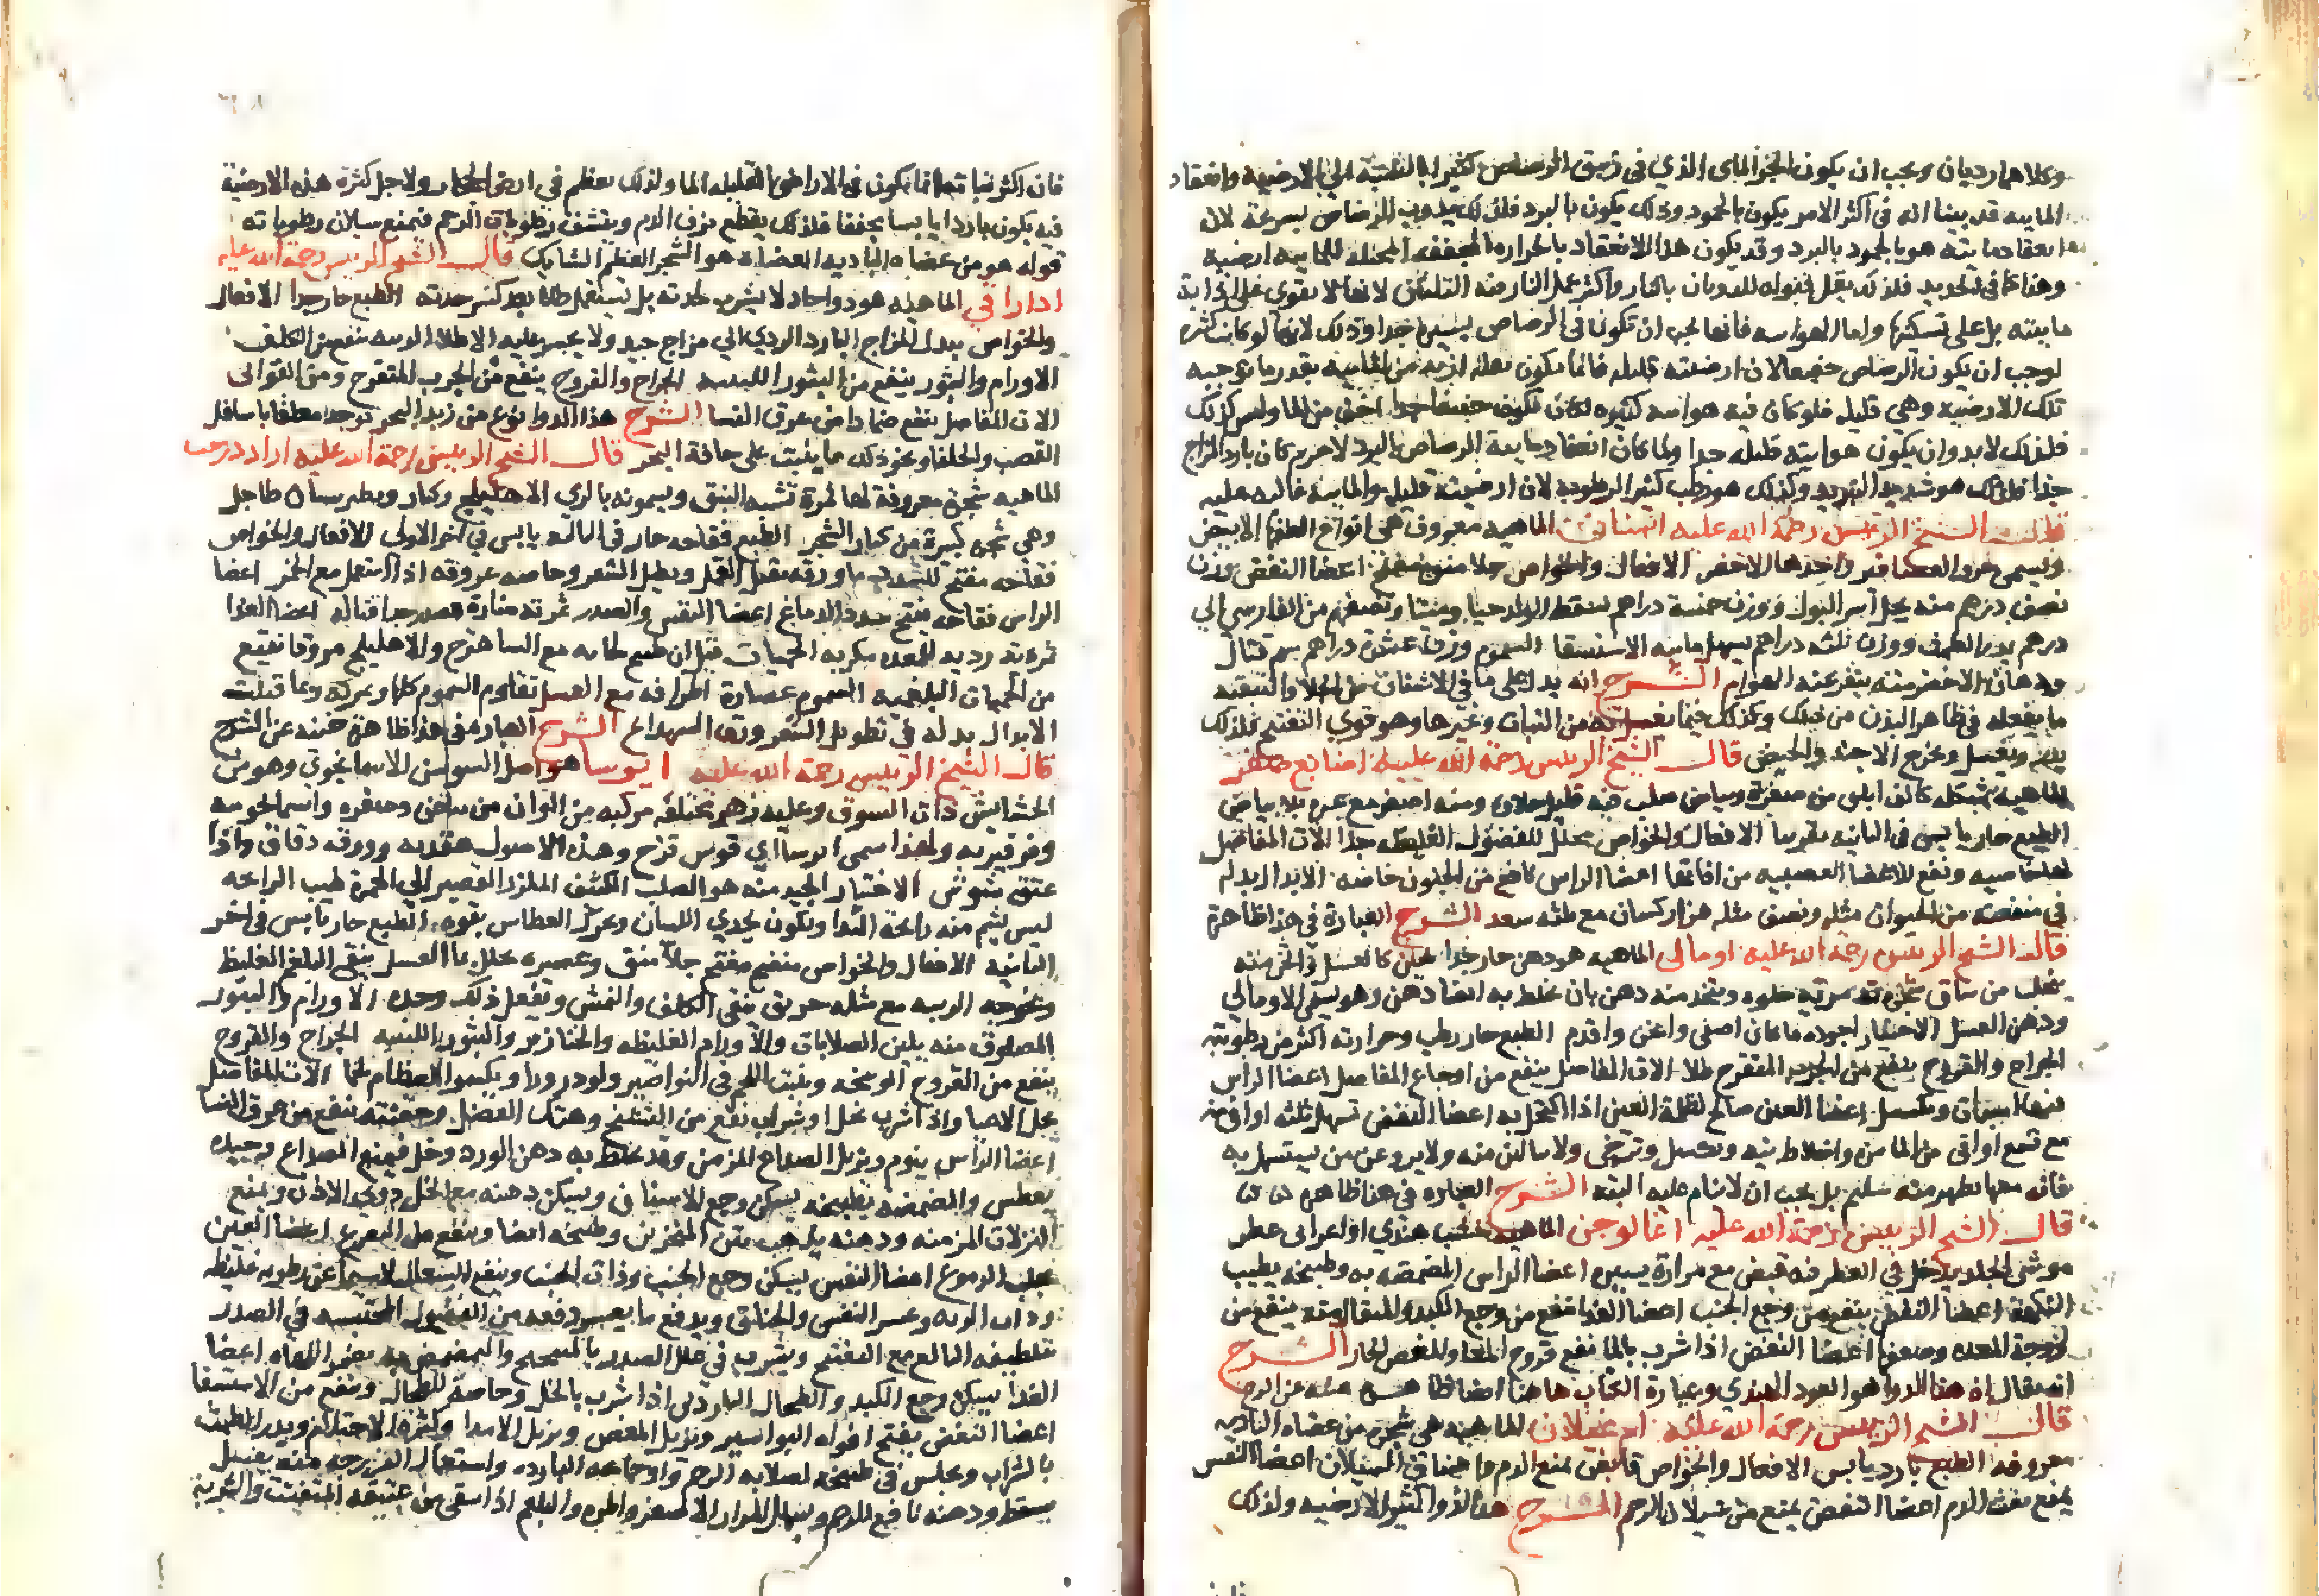 وكلاهما رديان ويجب ان يكون الجزء المائى الذي فى زيبق الرصاص كثيرا بالنسبة الى الارضية وانعقاد
المائيه قد بينا انه فى اكثر الامر يكون بالجمود وذلك يكون بالبرد فلذلك يذوب الرصاص بسرعة لان
انعقاد مائيته هو بالجمود بالبرد وقد يكون هذا الانعقاد بالحراره المجففه المحيله للمائيه ارضية
وهذا كما فى الحديد فلذلك يقل قبوله للذوبان بالنار واكثر عمل النار فيه التليين لانها لا تقوى على اذابة
مائيته بل على تسكينها واما الهوائيه فانها يجب ان تكون فى الرصاص يسيرة جدا وذلك لانها لو كانت كثيره
لوجب ان يكون الرصاص خفيفا لان ارضيته قليله فانما يكون ثقله ازيد من المائيه بقدر ما توجبه
تلك الارضيه وهي قليله فلو كان فيه هوائيه كثيره لكان يكون خفيفا جدا اخف من الما وليس كذلك
فلذلك لابد وان يكون هوائيته قليله جدا ولما كان انعقاد مائية الرصاص بالبرد لاجرم كان بارد المزاج
جدا فلذلك هو شديد التبريد وكذلك هو رطب كثير الرطوبه لان ارضيته قليله والمائية غالبه عليه
قال الشيخ الرييس رحمة الله عليه اشنان الماهيه معروف هى انواع الطفها الابيض
ويسمى خرو العصافير واحدها الاخضر الافعال والخواص جلا منق مفتح اعضا النفض وزن
نصف درهم منه يحل اسر البول ووزن خمسة دراهم يسقط الولد حيا وميتا ونصف من الفارسى الي
درهم يدر الطمث ووزن ثلثه دراهم يسهل مائيه الاستسقا السموم وزن عشرة دراهم سم قتال
ودخان الاخضر منه ينفر عنه الهوام الشرح انه يدل على ما فى الاشنان من الجلا والتنقيه
ما يفعله فى ظاهر البدن من ذلك وكذلك فيما يغسل به من الثياب وغيرها وهو قوى التفتيح فلذلك
يدر ويغسل ويخرج الاجنه والحيض قال الشيخ الرييس رحمة الله عليه اصابع صفر
الماهيه شكله كالكف ابلق من صفرة وبياض صلب فيه قليل حلاوه ومنه اصفر مع غبره بلا بياض
الطبع حار يابس فى الثانيه تقريبا الافعال والخواص محلل للفضول الغليظه جدا الات المفاصل
لها خاصيه ونفع للاعضا العصبيه من افاتها اعضا الراس نافع من الجنون خاصه الابدال بدله
في منفعته من الحيوان مثله ونصف مثله هزاركسان مع ثلثه سعد الشرح العبارة فى هذا ظاهرة
قال الشيخ الرييس رحمة الله عليه اومالى الماهيه هو دهن حار جدا ثخين كالعسل واثخن منه
يتحلب من ساق شجرة تدمريه حلوه ويتخذ منه دهن بان يخلط به ايضا دهن وهو يسمى الاومالي
ودهن العسل الاختيار اجوده ما كان اصفى واثخن واقدم الطبع حار رطب وحرارته اكثر من رطوبته
الجراح والقروح ينفع من الجرب المتقرح طلا الات المفاصل ينفع من اوجاع المفاصل اعضا الراس
فيه اسبات وكسل اعضا العين صالح لظلمة العين اذا اكتحل به اعضا النفض تسهل ثلثه اواق منه
مع تسع اواقى من الما مرة واخلاط نيه وبكسل وترخى ولا يبالين منه ولا يروعن من يستسهل به
فانه مهما يظهر منه سليم بل يجب ان لا ينام عليه البته الشرح العباره فى هذا ظاهره
قال الشيخ الرييس رحمة الله عليه اغالوجن الماهيه خشب هندي او اعرابى عطر
موشى الجلد يدخل فى العطر فيه قبض مع مرارة يسيره اعضا الراس المضمضه به وطبيخه يطيب
النكهة اعضا النفس ينفع من وجع الجنب اعضا الغذا تنفع من وجع الكبد والمثقال منه ينفع من
لزوجة المعده وضعفها اعضا النفض اذا شرب بالما نفع قروح المعا والمغص الحار الشرح
انه يقال ان هذا الدوا هو العود الهندي وعبارة الكتاب هاهنا ايضا ظاهره غنيه عن الشرح
قال الشيخ الرييس رحمة الله عليه اد غيلان الماهيه هى شجرة من عضاه الباديه
معروفه الطبع بارد يابس الافعال والخواص قابض تمنع الدم وايضا فى السيلان اعضا النفس
يمنع نفث الدم اعضا النفض يمنع من سيلان الرحم الشرح هذا الدوا كثير الارضيه ولذلك
فان اكثر نباتها انما يكون فى الاراضى القليله الما ولذلك يعظم فى ارض الحجاز ولاجل كثره هذه الارضية
فيه يكون باردا يابسا مجففا فلذلك يقطع نزف الدم وينشف رطوبات الرحم فيمنع سيلان رطوباته
قوله هو من عضاه الباديه العضاه هو الشجر العظيم الشايك قال الشيخ الرييس رحمة الله عليه
ادارافي الماهيه هو دوا حاد لا يشرب لحدته بل يستعمل طلا بعد كسر حدته الطبع حار جدا الافعال
والخواص يبدل المزاج البارد الردي الي مزاج جيد ولا يجسر عليه الا طلا الزينه ينفع من الكلف
الاورام والبثور ينفع من البثور اللبنيه الجراح والقروح ينفع من الجرب المتقرح ومن القوابى
الات المفاصل ينفع ضمادا من عرق النسا الشرح هذا الدوا نوع من زبد البحر توجد معلقا باسافل
القصب والحلفا ونحو ذلك ما ينبت على حافة البحر قال الشيخ الرييس رحمة الله عليه ازاددرخت
الماهيه شجرة معروفة لها ثمرة تشبه النبق ويسمونه بالري الاهليلج وكنار وبطبرستان طاحل
وهي شجرة كبيرة من كبار الشجر الطبع فقاحه حار فى الثالثه يابس في آخر الاولى الافعال والخواص
فقاحه مفتح للسدد ما ورقه يقتل القمل ويطيل الشعر وخاصه عروقه اذا استعمل مع الخمر اعضا
الراس فقاحه يفتح سدد الدماغ اعضا النفس والصدر ثمرته ضارة للصدر جدا قتاله اعضا الغذا
ثمرته رديه للمعده مكربه الحميات قيل ان طبيخ لحايه مع الشاهترج والاهليلج مروقا ينفع
من الحميات البلغميه السموم عصارة اطرافه مع العسل تقاوم السموم كلها وثمرته ربما قتلت
الابدال بدله في تطويل الشعر ورق الشهدانج الشرح العباره فى هذا ظاهرة غنيه عن الشرح
قال الشيخ الرييس رحمة الله عليه ايرسا هو اصل السوسن الاسمانجونى وهو من
الحشائيش ذات السوق وعليه زهر مختلفه مركبه من الوان من بياض وصفره واسمانجونيه
وفرفيريه ولهذا سمى ايرسا اي قوس قزح وهذه الاصول عقديه وورقه دقاق واذا
عتق يتسوس الاختيار الجيد منه هو الصلب الكثيف الملزز القصير الي الحمرة طيب الرايحه
ليس يشم منه رايحة الندا ويكون يحذي اللسان ويحرك العطاس بقوه الطبع حار يابس فى اخر
الثانيه الافعال والخواص منضج مفتح جلا منق وعصيره محلل بما العسل ينقى البلغم الغليظ
ويخرجه الزينه مع مثله خربق ينقى الكلف والنمش ويفعل ذلك وحده الاورام والبثور
المصلوق منه يلين الصلابات والاورام الغليظه والخنازير والبثور اللبنيه الجراح والقروح
ينفع من القروح الوسخه وينبت اللحم فى النواصير ولو ذرورا ويكسوا العظام لحما الات المفاصل
يحل الاعيا واذا شرب بخل او شراب نفع من التشنج وهتك العضل وحقنته ينفع من عرق النسا
اعضا الراس ينوم ويزيل الصداع المزمن وقد يخلط به دهن الورد وخل فيمنع الصداع وحيده
يعطس والمضمضه بطبيخه يسكن وجع الاسنان ويسكن دهنه مع الخل دوى الاذان ويمنع
النزلات المزمنه ودهنه يذهب نتن المنخرين وطبيخه ايضا وينفع من الصرع اعضا العين
يجلب الدموع اعضا النفس يسكن وجع الجنب وذات الجنب وينفع السعال لاسيما عن رطوبه غليظه
وذات الريه وعسر النفس والخناق ويدفع ما يعسر دفعه من الفضول المحتبسه في الصدر
بتلطيفه البالغ مع التفتيح ويشرب فى علل الصدر بالميبختج والمضمض به يضمر اللهاه اعضا
الغذا يسكن وجع الكبد والطحال الباردين اذا شرب بالخل وخاصة للطحال وينفع من الاستسقا
اعضا النفض يفتح افواه البواسير ويزيل المغص ويزيل الامذا وكثرة الاحتلام ويدر الطمث
بالشراب ويجلس فى طبيخه لصلابه الرحم واوجاعه البارده واستعمال الفرزجه منه بعسل
يسقط ودهنه نافع للرحم ويسهل المرار الاصفر والمره والبلغم اذا سقى من عتيقه المتفتت والشربه